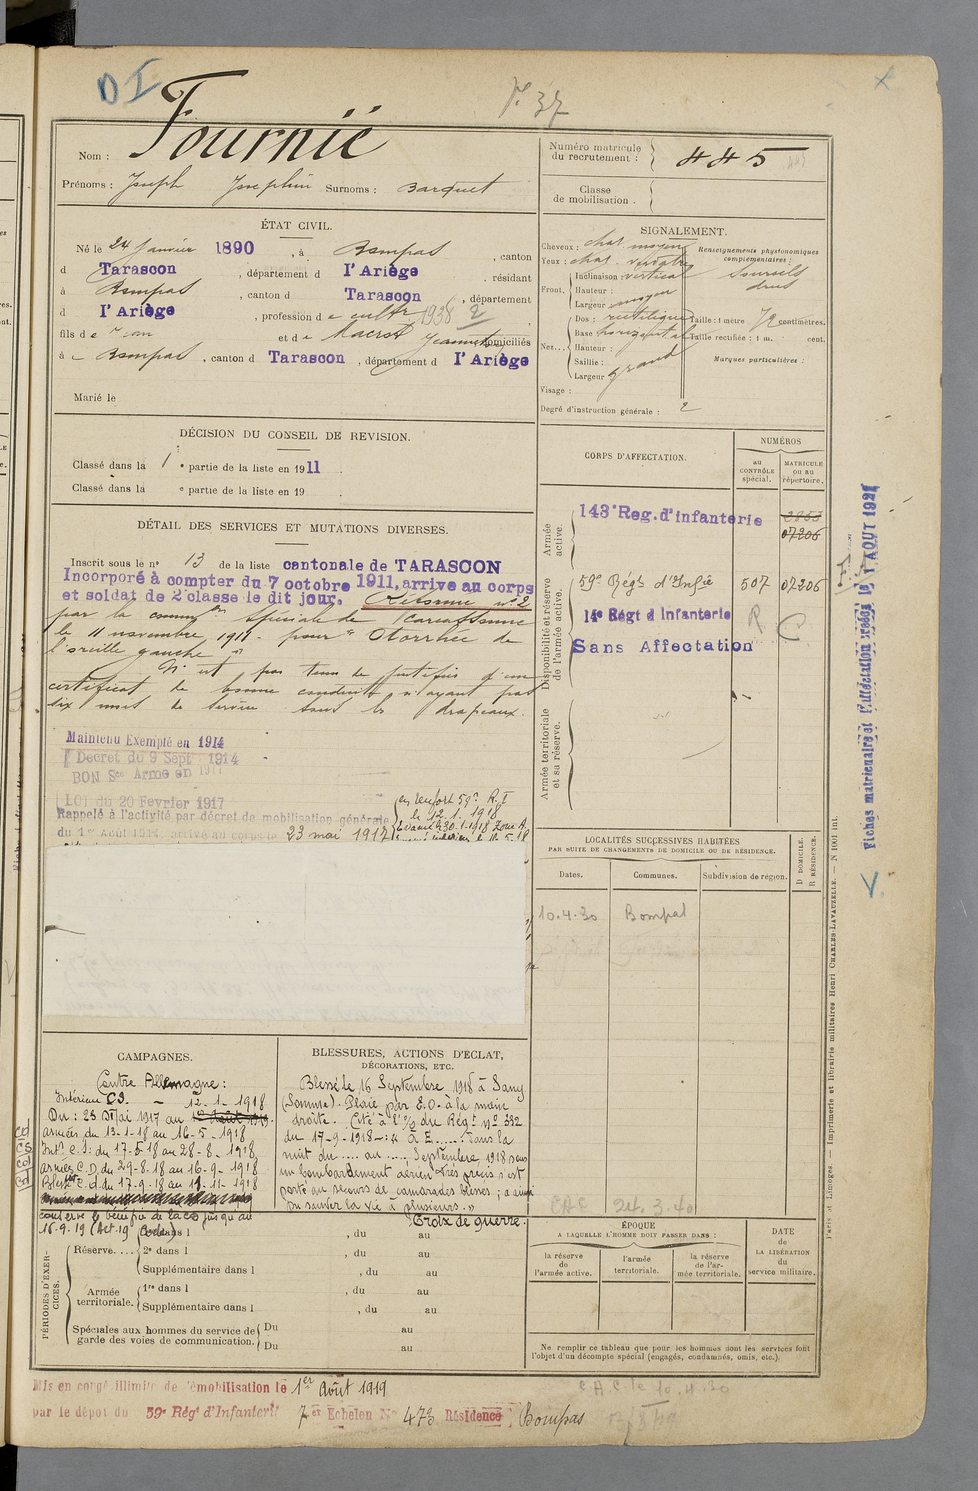 D I
F. 37
Nom : Fournié
Prénoms : Joseph Josephin Surnoms : Barquet
Numéro matricule du recrutement : 445
Classe de mobilisation .
ÉTAT CIVIL.
Né le 24 Janvier 1890 , à Bompas , canton
d Tarascon , département d l'Ariège , résidant
à Bompas , canton d Tarascon , département
d l'Ariège , profession de cultr 1938 2
fils de Jean et de Macrot Jeannette domiciliés
à Bompas , canton d Tarascon , département d l'Ariège
Marié le
SIGNALEMENT.
Cheveux : chat. moyen
Yeux : chat. verdâtre
Front. Inclinaison : vertical
Hauteur :
Largeur : moyen
Nez... Dos : rectiligne
Base : horizontale
Hauteur :
Saillie :
Largeur : grand
Visage :
Degré d'instruction générale : 2
Renseignements physionomiques complémentaires :
Sourcils drus
Taille : 1 mètre 72 centimètres.
Taille rectifiée : 1 m. cent.
Marques particulières :
DÉCISION DU CONSEIL DE REVISION.
Classé dans la 1e partie de la liste en 1911 .
Classé dans la e partie de la liste en 19 .
DÉTAIL DES SERVICES ET MUTATIONS DIVERSES.
Inscrit sous le n° 13 de la liste cantonale de TARASCON
Incorporé à compter du 7 octobre 1911, arrive au corps
et soldat de 2e classe le dit jour. Réformé n° 2
par la common spéciale de Carcassonne
le 11 novembre 1911 pour " Otorrhée de
l'oreille gauche "
N'est pas tenu de justifier d'un
certificat de bonne conduite n'ayant pas
six mois de service sous les drapeaux.
Maintenu Exempté en 1914
Décret du 9 Sept 1914
BON Sce Armé en 1917
LOI du 20 Fevrier 1917
Rappelé à l'activité par décret de mobilisation générale
du 1er Août 1914, arrivé au corps le 23 mai 1917
en renfort 59e R.I
le 12.1.1918
CORPS D'AFFECTATION.
NUMÉROS
au CONTRÔLE spécial.
MATRICULE ou au répertoire.
Armée active.
143e Reg. d'infanterie
07206
Disponibilité et réserve de l'armée active.
59e Régt d'Infie 507 07206
14e Régt d Infanterie
R C
Sans Affectation
Armée territoriale et sa réserve.
Fiches matricule et d'affectation créées le 1 AOUT 1921
LOCALITÉS SUCCESSIVES HABITÉES
PAR SUITE DE CHANGEMENTS DE DOMICILE OU DE RÉSIDENCE.
Dates. Communes. Subdivision de région. D DOMICILE. R RÉSIDENCE.
10.4.30 Bompas
CAMPAGNES.
Contre Allemagne :
Intérieur CS. – 12-1-1918
Du : 23 Mai 1917 au
armées du 13-1-18 au 16-5-1918
Intr C.S: du 17-5-18 au 28-8-1918
armées C.D. du 29-8-18 au 16-9-1918
Blessé C.d. du 17-9-18 au 11-11-1918
conserve le bénéfice de la CS jusqu'au
16.9.19 (Art. 19
BLESSURES, ACTIONS D'ÉCLAT,
DÉCORATIONS, ETC.
Blessé le 16 Septembre 1918 à Sany
(Somme). Plaie par E.O. à la main
droite. Cité à l'O/ du Régt n° 332
du 17-9-1918 : " à E...... Dans la
nuit du ..... au ....., Septembre 1918 sous
un bombardement aérien très précis s'est
porté au secours de camarades blessés ; a ainsi
pu sauver la vie à plusieurs. "
Croix de guerre.
CAC 24.3.40
PÉRIODES D'EXERCICES.
Réserve.... 1re dans l , du au
2e dans l , du au
Supplémentaire dans l , du au
Armée territoriale. 1re dans l , du au
Supplémentaire dans l , du au
Spéciales aux hommes du service de garde des voies de communication. Du au
Du au
ÉPOQUE
A LAQUELLE L'HOMME DOIT PASSER DANS :
la réserve de l'armée active.
l'armée territoriale.
la réserve de l'armée territoriale.
DATE de LA LIBÉRATION du service militaire.
Ne remplir ce tableau que pour les hommes dont les services font
l'objet d'un décompte spécial (engagés, condamnés, omis, etc.).
Paris et Limoges. — Imprimerie et librairie militaires Henri CHARLES-LAVAUZELLE. — N 1001 int.
Mis en congé illimité de démobilisation le 1er Août 1919
par le dépôt du 59e Régt d'Infanterie 7er Echelon No 473 Résidence Bompas
CAC le 10.4.30